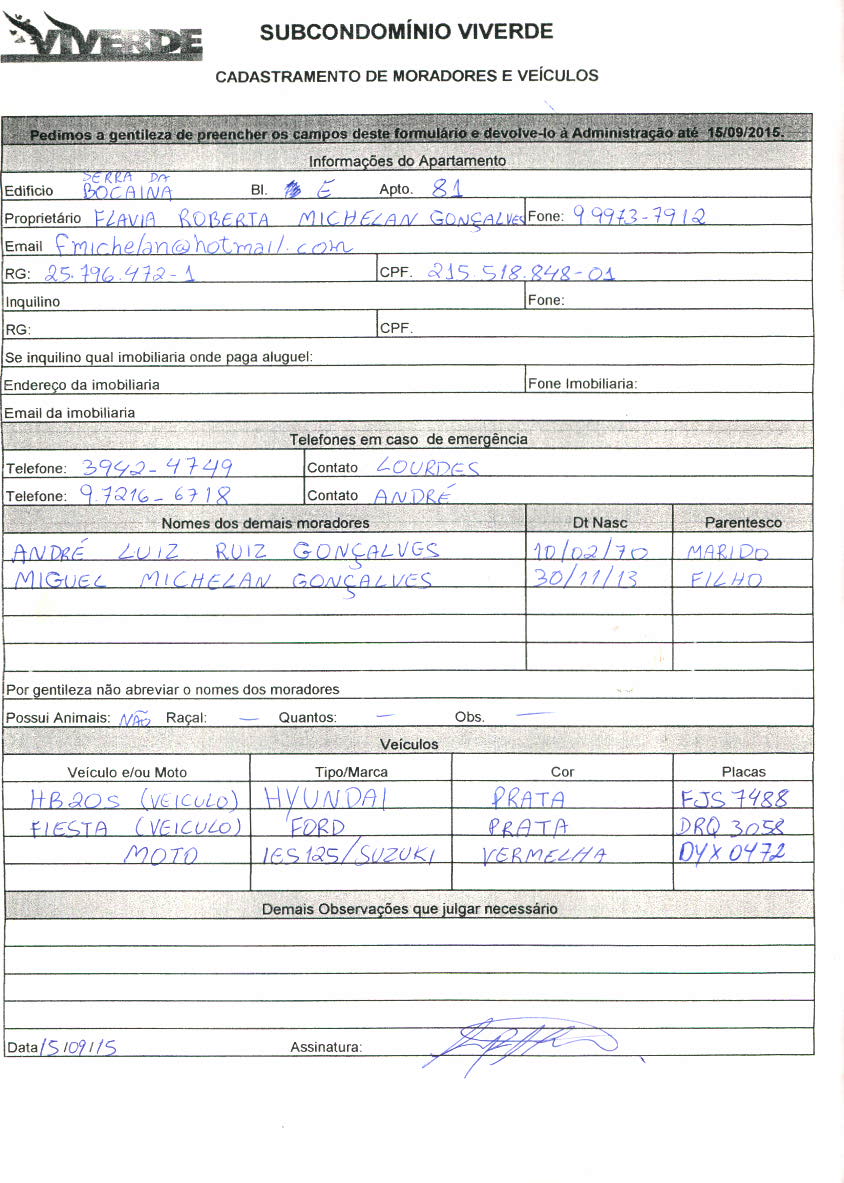 VIVERDE
SUBCONDOMÍNIO VIVERDE
CADASTRAMENTO DE MORADORES E VEÍCULOS
Pedimos a gentileza de preencher os campos deste formulário e devolve-lo à Administração até 15/09/2015.
Informações do Apartamento
Edificio SERRA DA BOCAINA Bl. E Apto. 81
Proprietário FLAVIA ROBERTA MICHELAN GONÇALVES Fone: 99973-7912
Email fmichelan@hotmail.com
RG: 25.796.472-1 CPF. 215.518.848-01
Inquilino Fone:
RG: CPF.
Se inquilino qual imobiliaria onde paga aluguel:
Endereço da imobiliaria Fone Imobiliaria:
Email da imobiliaria
Telefones em caso de emergência
Telefone: 3942-4749 Contato LOURDES
Telefone: 9.7216-6718 Contato ANDRÉ
Nomes dos demais moradores Dt Nasc Parentesco
ANDRÉ LUIZ RUIZ GONÇALVES 10/02/70 MARIDO
MIGUEL MICHELAN GONÇALVES 30/11/13 FILHO
Por gentileza não abreviar o nomes dos moradores
Possui Animais: NÃO Raçal: — Quantos: — Obs. —
Veículos
Veículo e/ou Moto Tipo/Marca Cor Placas
HB20S (VEICULO) HYUNDAI PRATA FJS 7488
FIESTA (VEICULO) FORD PRATA DRQ 3058
MOTO IES125/SUZUKI VERMELHA DYX 0472
Demais Observações que julgar necessário
Data 15/09/15 Assinatura: